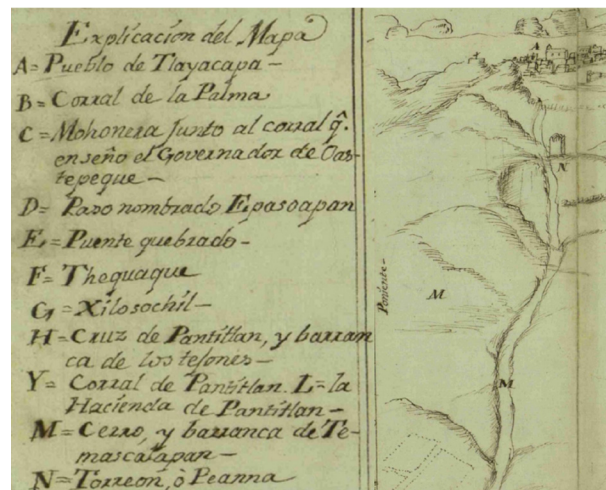 Explicación del Mapa
A= Pueblo de Tlayacapa-
B= Corral de la Palma
C= Mohonera Junto al corral q̂.
enseño el Governador de Oas-
tepeque-
D= Paso nombrado Epasoapan
E= Puente quebrado-
F= Thequaque
G= Xilosochil-
H= Cruz de Pantitlan, y barran
ca de los tesones-
Y= Corral de Pantitlan. L= la
Hacienda de Pantitlan-
M= Cerro, y barranca de Te-
mascalapan-
N= Torreon, ò Peanna
A
N
Poniente-
M
M